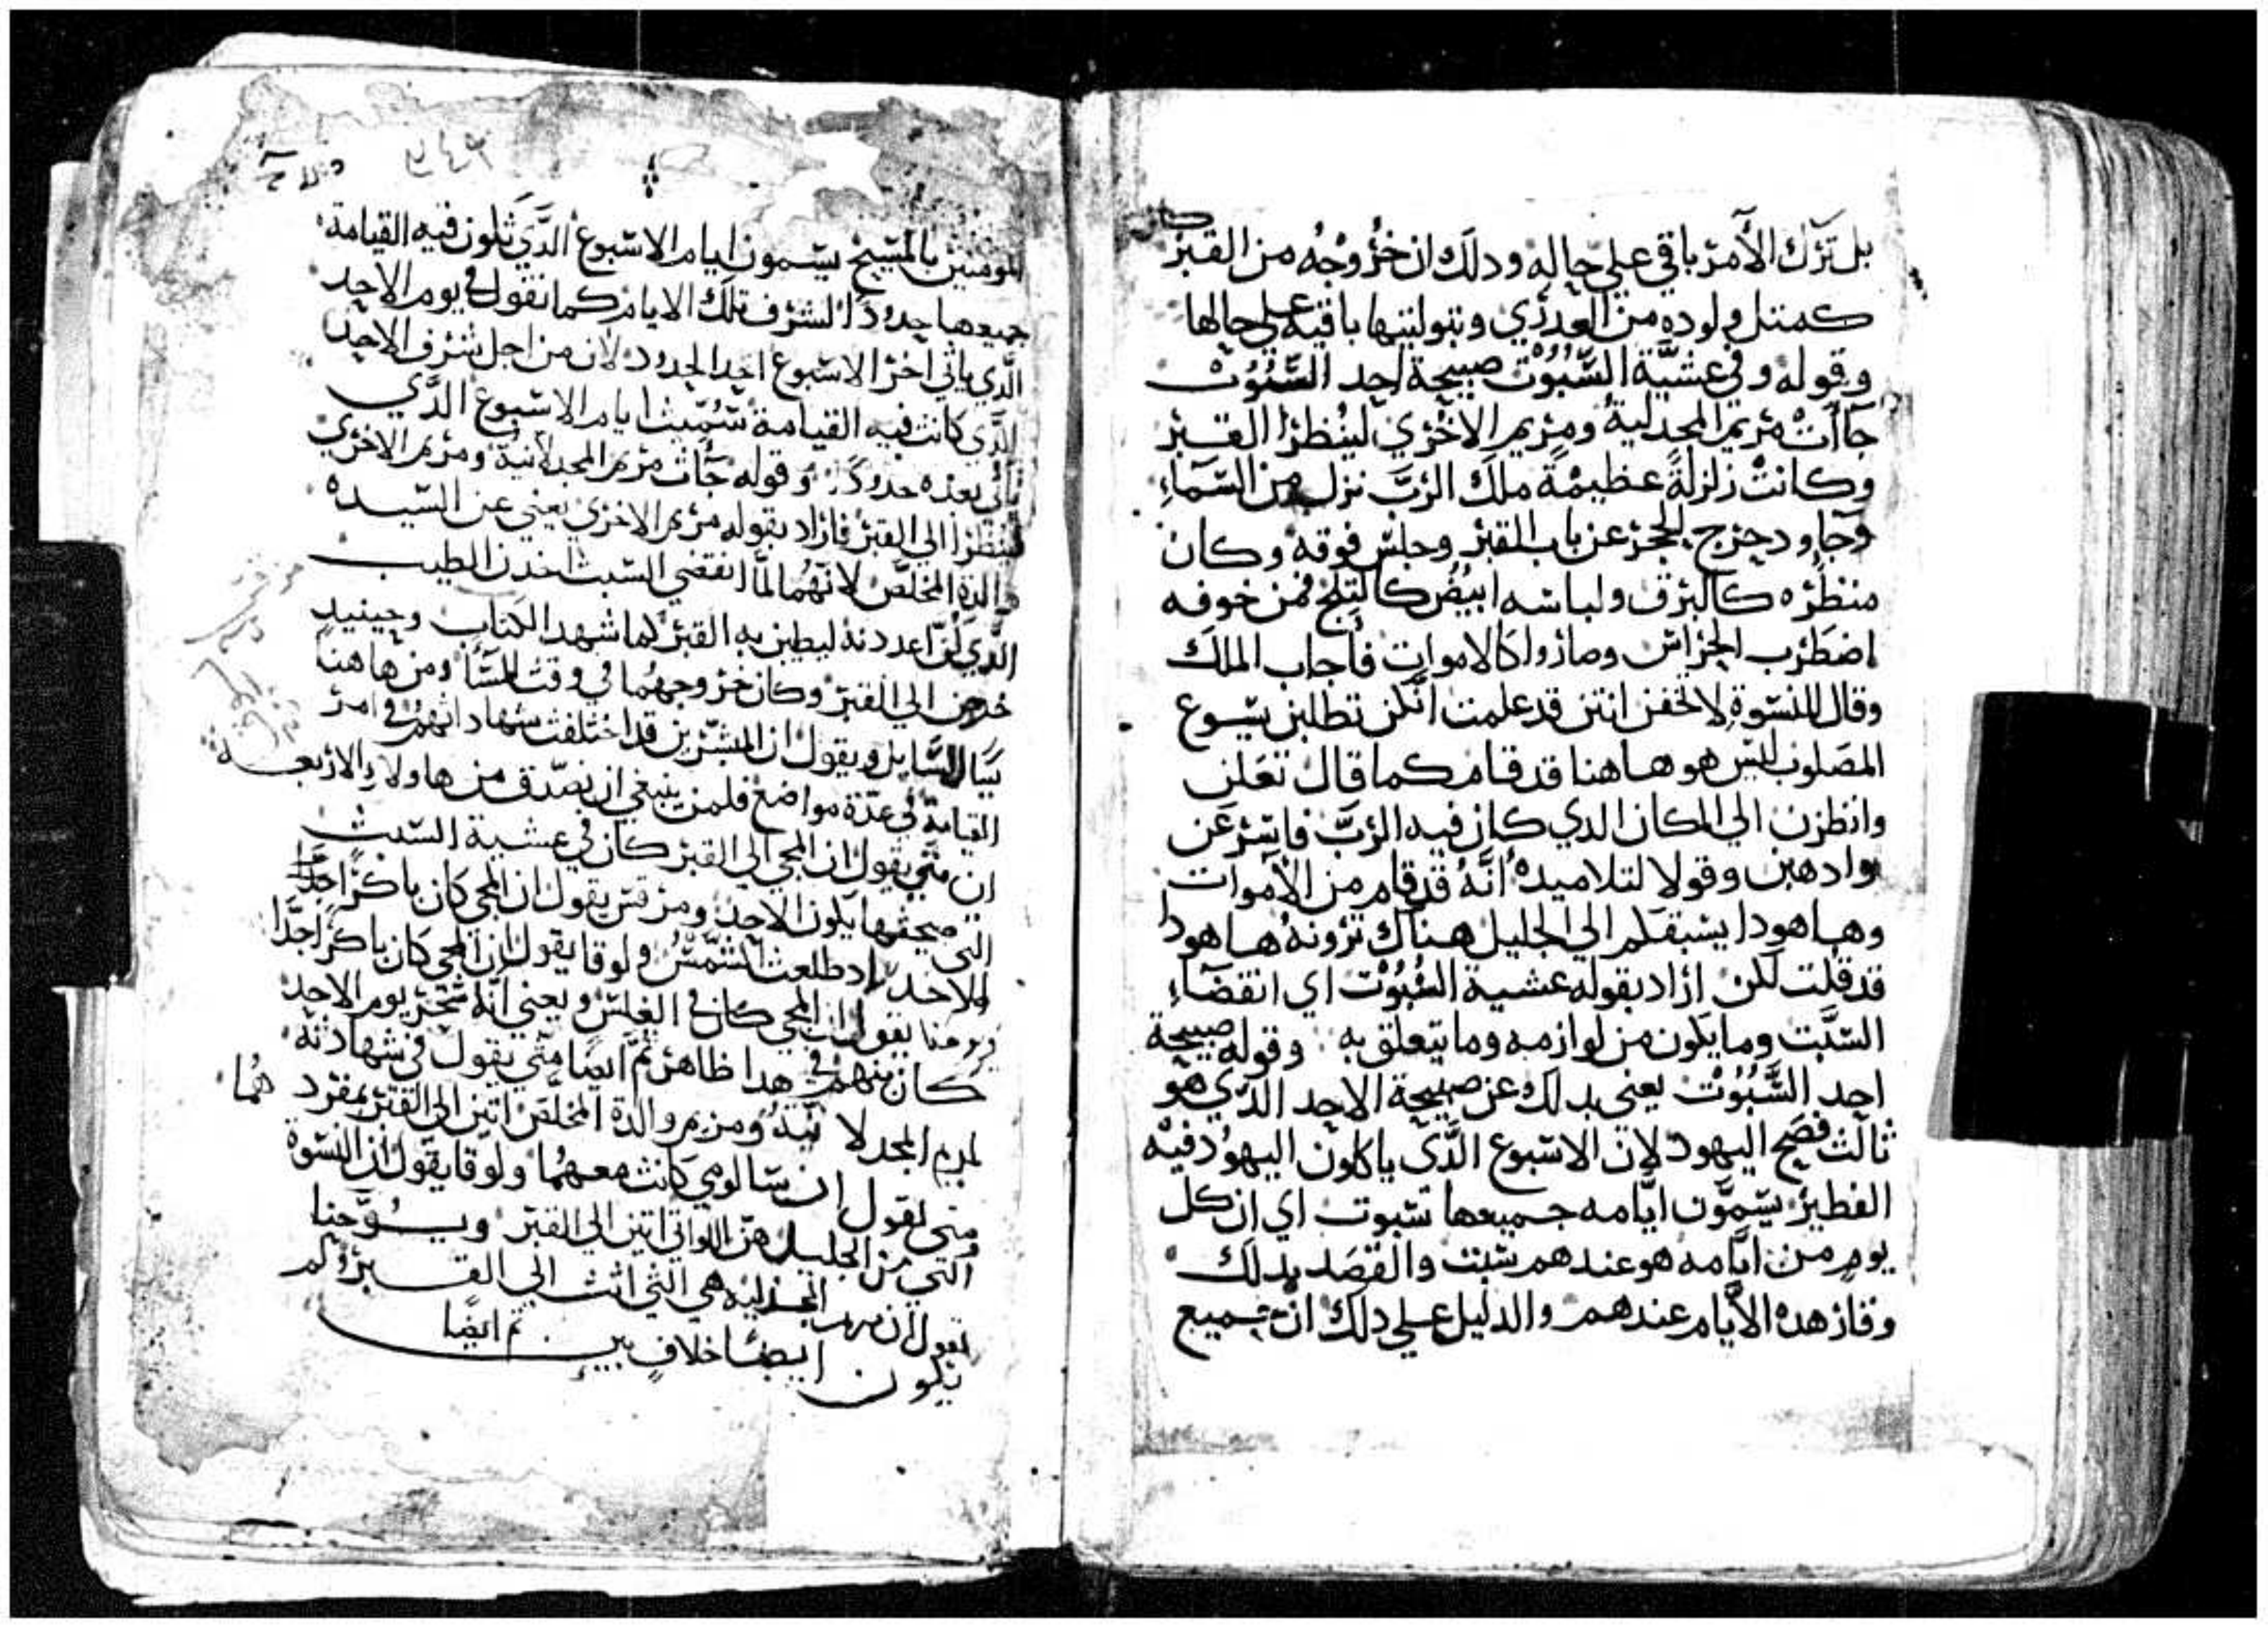 بل ترك الأمر باقي علي حاله ودلك ان خروجه من القبر كان
كمتل ولوده من العدري وبتوليتها باقيه علي حالها
وقوله وفي عشيَّة السُّبُوت صبيحة احد السُّبُوت
جاات مريم المجدلية ومريم الاخري لينظرا القبر
وكانت زلزلة عظيمة ملاك الرَّب نزل من السَّماء
وجا ودحرج الحجر عن باب القبر وجلس فوقه وكان
منظره كالبرق ولباسه ابيض كالتلج فمن خوفه
اضطرب الحراس وصاروا كالاموات فأجاب الملاك
وقال للنسوة لا تخفن انتن قد علمت انكن تطلبن يسوع
المصلوب ليس هو هاهنا قد قام كما قال تعلن
وانظرن الي المكان الدي كان فيه الرَّب فاسرعن
وادهبن وقولا لتلاميده انَّه قد قام من الأموات
وهاهودا يسبقكم الي الجليل هناك ترونه هاهودا
قد قلت لكن اراد بقوله عشية السُّبُوت اي انقضاء
السَّبت وما يكون من لوازمه وما يتعلق به وقوله صبيحة
احد السَّبُوت يعني بدلك عن صبيحة الاحد الدي هو
ثالث فصح اليهود لان الاسبوع الدَّي ياكلون اليهود فيه
الفطير يسمَّون ايَّامه جميعها سبوت اي ان كل
يوم من ايَّامه هو عندهم سبت والقصد بدلك
وقار هده الأيام عندهم والدليل علي دلك انّ جميع
المومنين بالمسيح يسمون ايام الاسبوع الدَّي تكون فيه القيامة
جميعها حدودًا لشرف تلك الايام كما نقول في يوم الاحد
الَّدي ياتي اخر الاسبوع احد الحدود لان من اجل شرف الاحد
الَّدي كانت فيه القيامة سُمّيت ايام الاسبوع الدَّي
ياتي بعده حدودًا وقوله جات مريم المجدلانية ومريم الاخري
لينظرا الي القبر فاراد بقوله مريم الاخري يعني عن السيده
والدة المخلّص لانّهما لمَّا انقضي السبت اخدن الطيب
الَّدي كنّ اعددنه ليطيبن به القبر كما شهد الكتاب وحينيد
خرجن الي القبر وكان خروجهما في وقت المسا ومن هاهنا
يسال السَّايل ويقول ان المبشرين قد اختلفت شهاداتهم في امر
القيامة في عدّة مواضع فلمن ينبغي ان نصّدق من هاولاء الاربعة
ان متي يقول ان المجي الي القبر كان في عشية السبت
التي صبحها يكون الاحد ومرقس يقول ان المجي كان باكرًا جدًّا
الاحد اد طلعت الشَّمس ولوقا يقول ان المجي كان باكرًا جدًّا
ويوحنا يقول ان المجي كان في الغلس ويعني انَّه سَحَر يوم الاحد
كان بينهم في هدا ظاهر ثمَّ ايضًا متّي يقول في شهادته
لمريم المجدلانيّة ومريم والدة المخلّص اتين الي القبر بمفردهما
يقول ان سالومي كانت معهما ولوقا يقول ان النسوة
التي من الجليل هنّ اللواتي اتين الي القبر ويوحنا
يقول ان مريم المجدلية هي التي اتت الي القبر ولم
يكون ايضًا خلاف بين ثم ايضًا